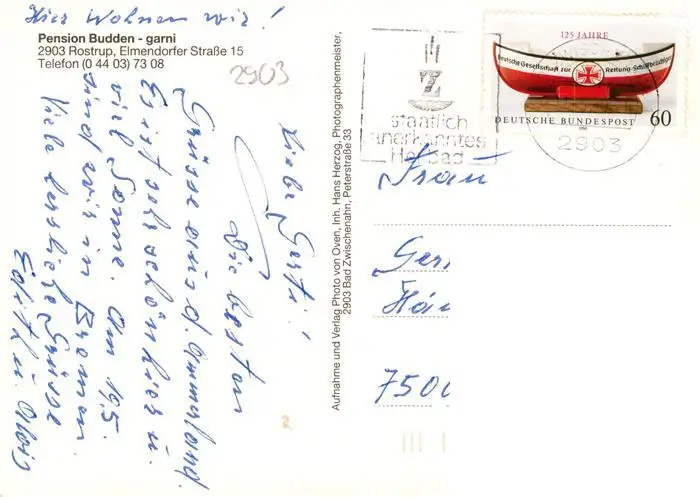 Hier wohnen wir!
Pension Budden - garni
2903 Rostrup, Elmendorfer Straße 15
Telefon (0 44 03) 73 08
2903
Liebe Gerti!
Die besten
Grüsse aus d. Ammerland.
Es ist sehr schön hier u.
viel Sonne. Am 19.5.
sind wir in Bremen.
Viele herzliche Grüsse
Edith u. Alois
Aufnahme und Verlag Photo von Oven, Inh. Hans Herzog, Photographenmeister,
2903 Bad Zwischenahn, Peterstraße 33
staatlich
anerkanntes
Heilbad
125 JAHRE
Deutsche Gesellschaft zur Rettung Schiffbrüchiger
DEUTSCHE BUNDESPOST 60
1990
2903
Frau
Ger
Hau
7500